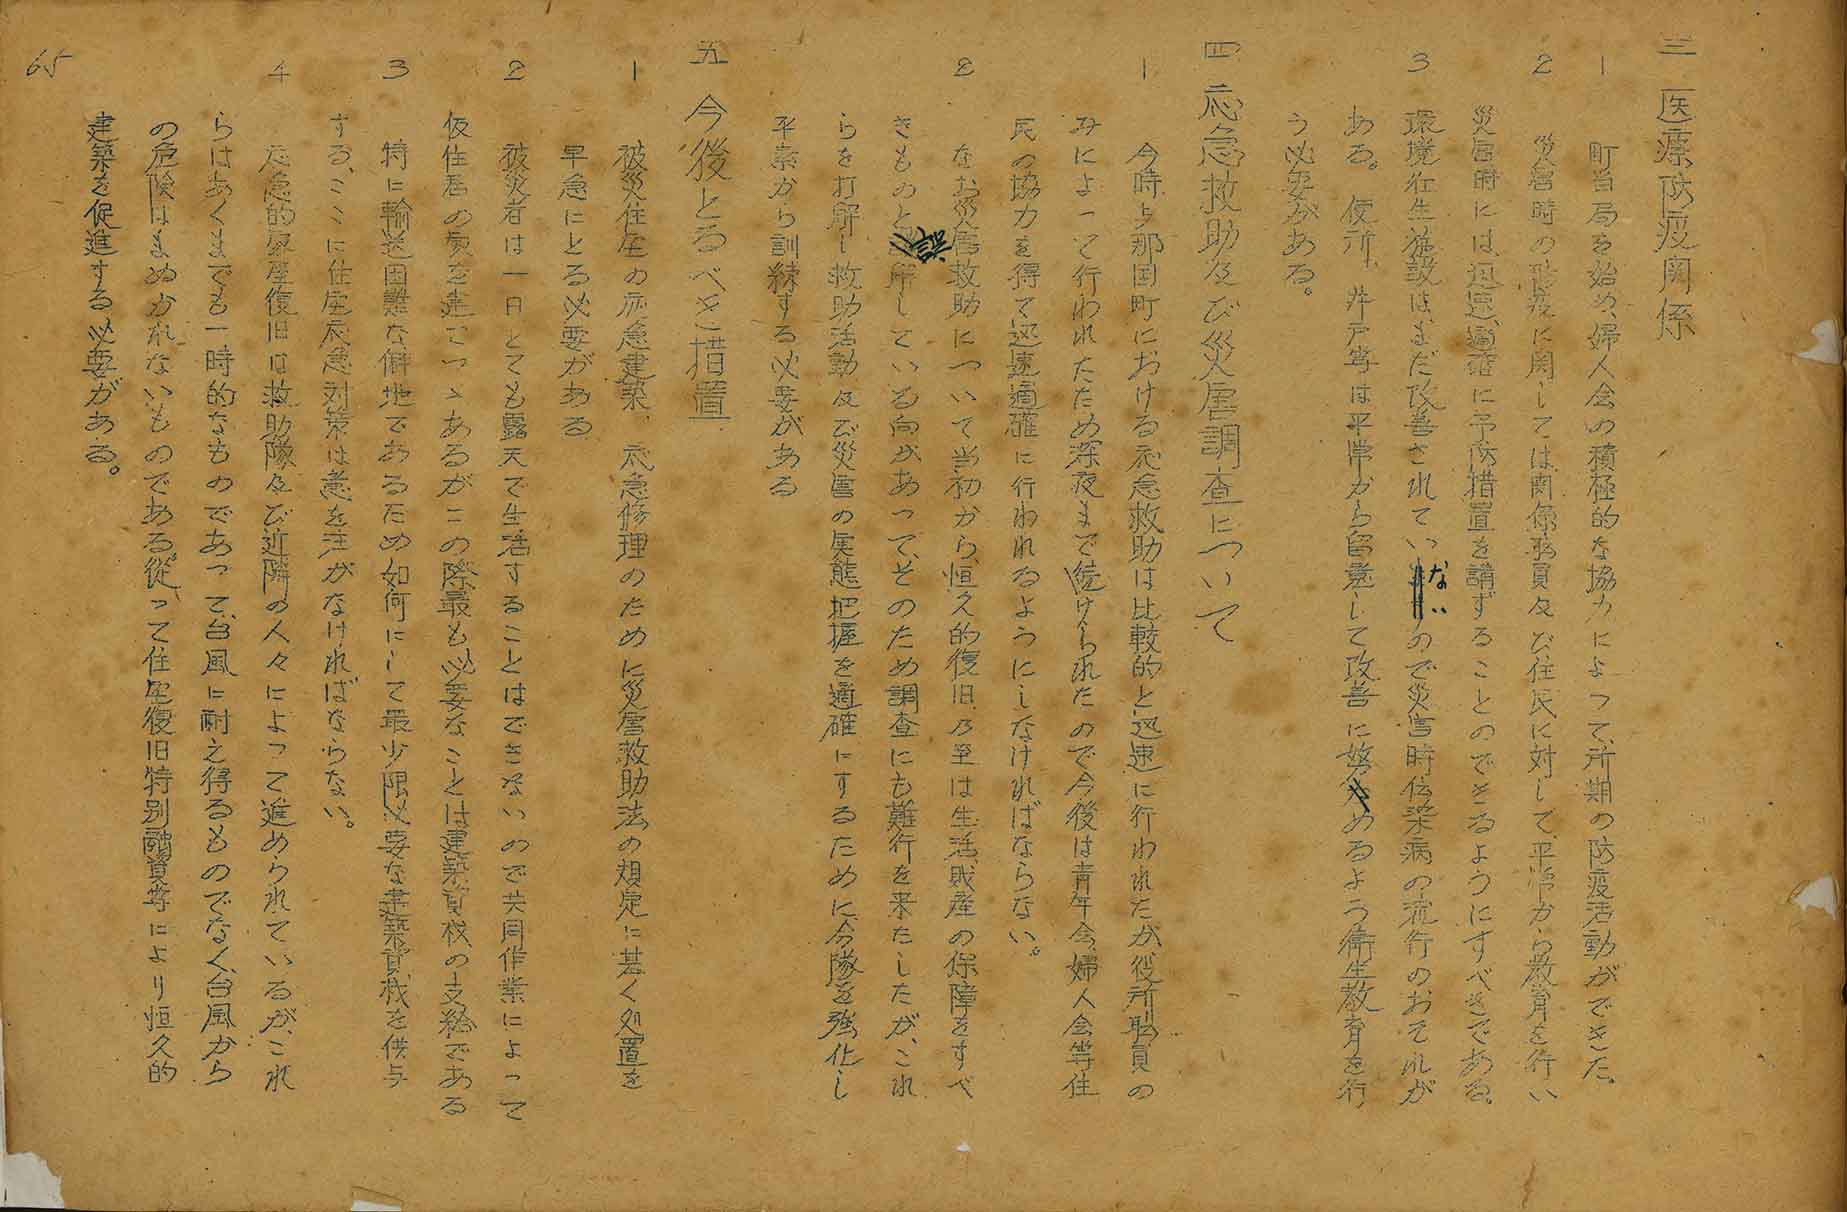 三 医療防疫関係
1 町当局を始め、婦人会の積極的な協力によって、所期の防疫活動ができた。
2 災害時の防疫に関しては関係職員及び住民に対して、平常から教育を行い
災害時には、迅速、適確に予防措置を講ずることのできるようにすべきである。
3 環境衛生施設は、まだ改善されていないので災害時伝染病の流行のおそれが
ある。便所、井戸等は平常から留意して改善に努めるよう衛生教育を行
う必要がある。
四 応急救助及び災害調査について
1 今時与那国町における応急救助は比較的と迅速に行われたが、役所職員の
みによって行われたため深夜まで続けられたので今後は青年会、婦人会等住
民の協力を得て迅速適確に行われるようにしなければならない。
2 なお災害救助について当初から、恒久的復旧乃至は生活、財産の保障をすべ
きものと誤解している向があって、そのため調査にも難行を来たしたが、これ
らを打解し救助活動及び災害の実態把握を適確にするために分隊を強化し
平素から訓練する必要がある
五 今後とるべき措置
1 被災住屋の応急建築、応急修理のために災害救助法の規定に基く処置を
早急にとる必要がある
2 被災者は一日とても露天で生活することはできないので共同作業によって
仮住居の家を建てつゝあるがこの際最も必要なことは建築資材の支給である
3 特に輸送困難な僻地であるため如何にして最少限必要な建築資材を供与
する、ここに住屋応急対策は意を注がなければならない。
4 応急的家屋復旧は救助隊及び近隣の人々によって進められているが、これ
らはあくまでも一時的なものであって、台風に耐え得るものでなく、台風から
の危険はまぬがれないものである。従って住屋復旧特別融資等により恒久的
建築を促進する必要がある。
65